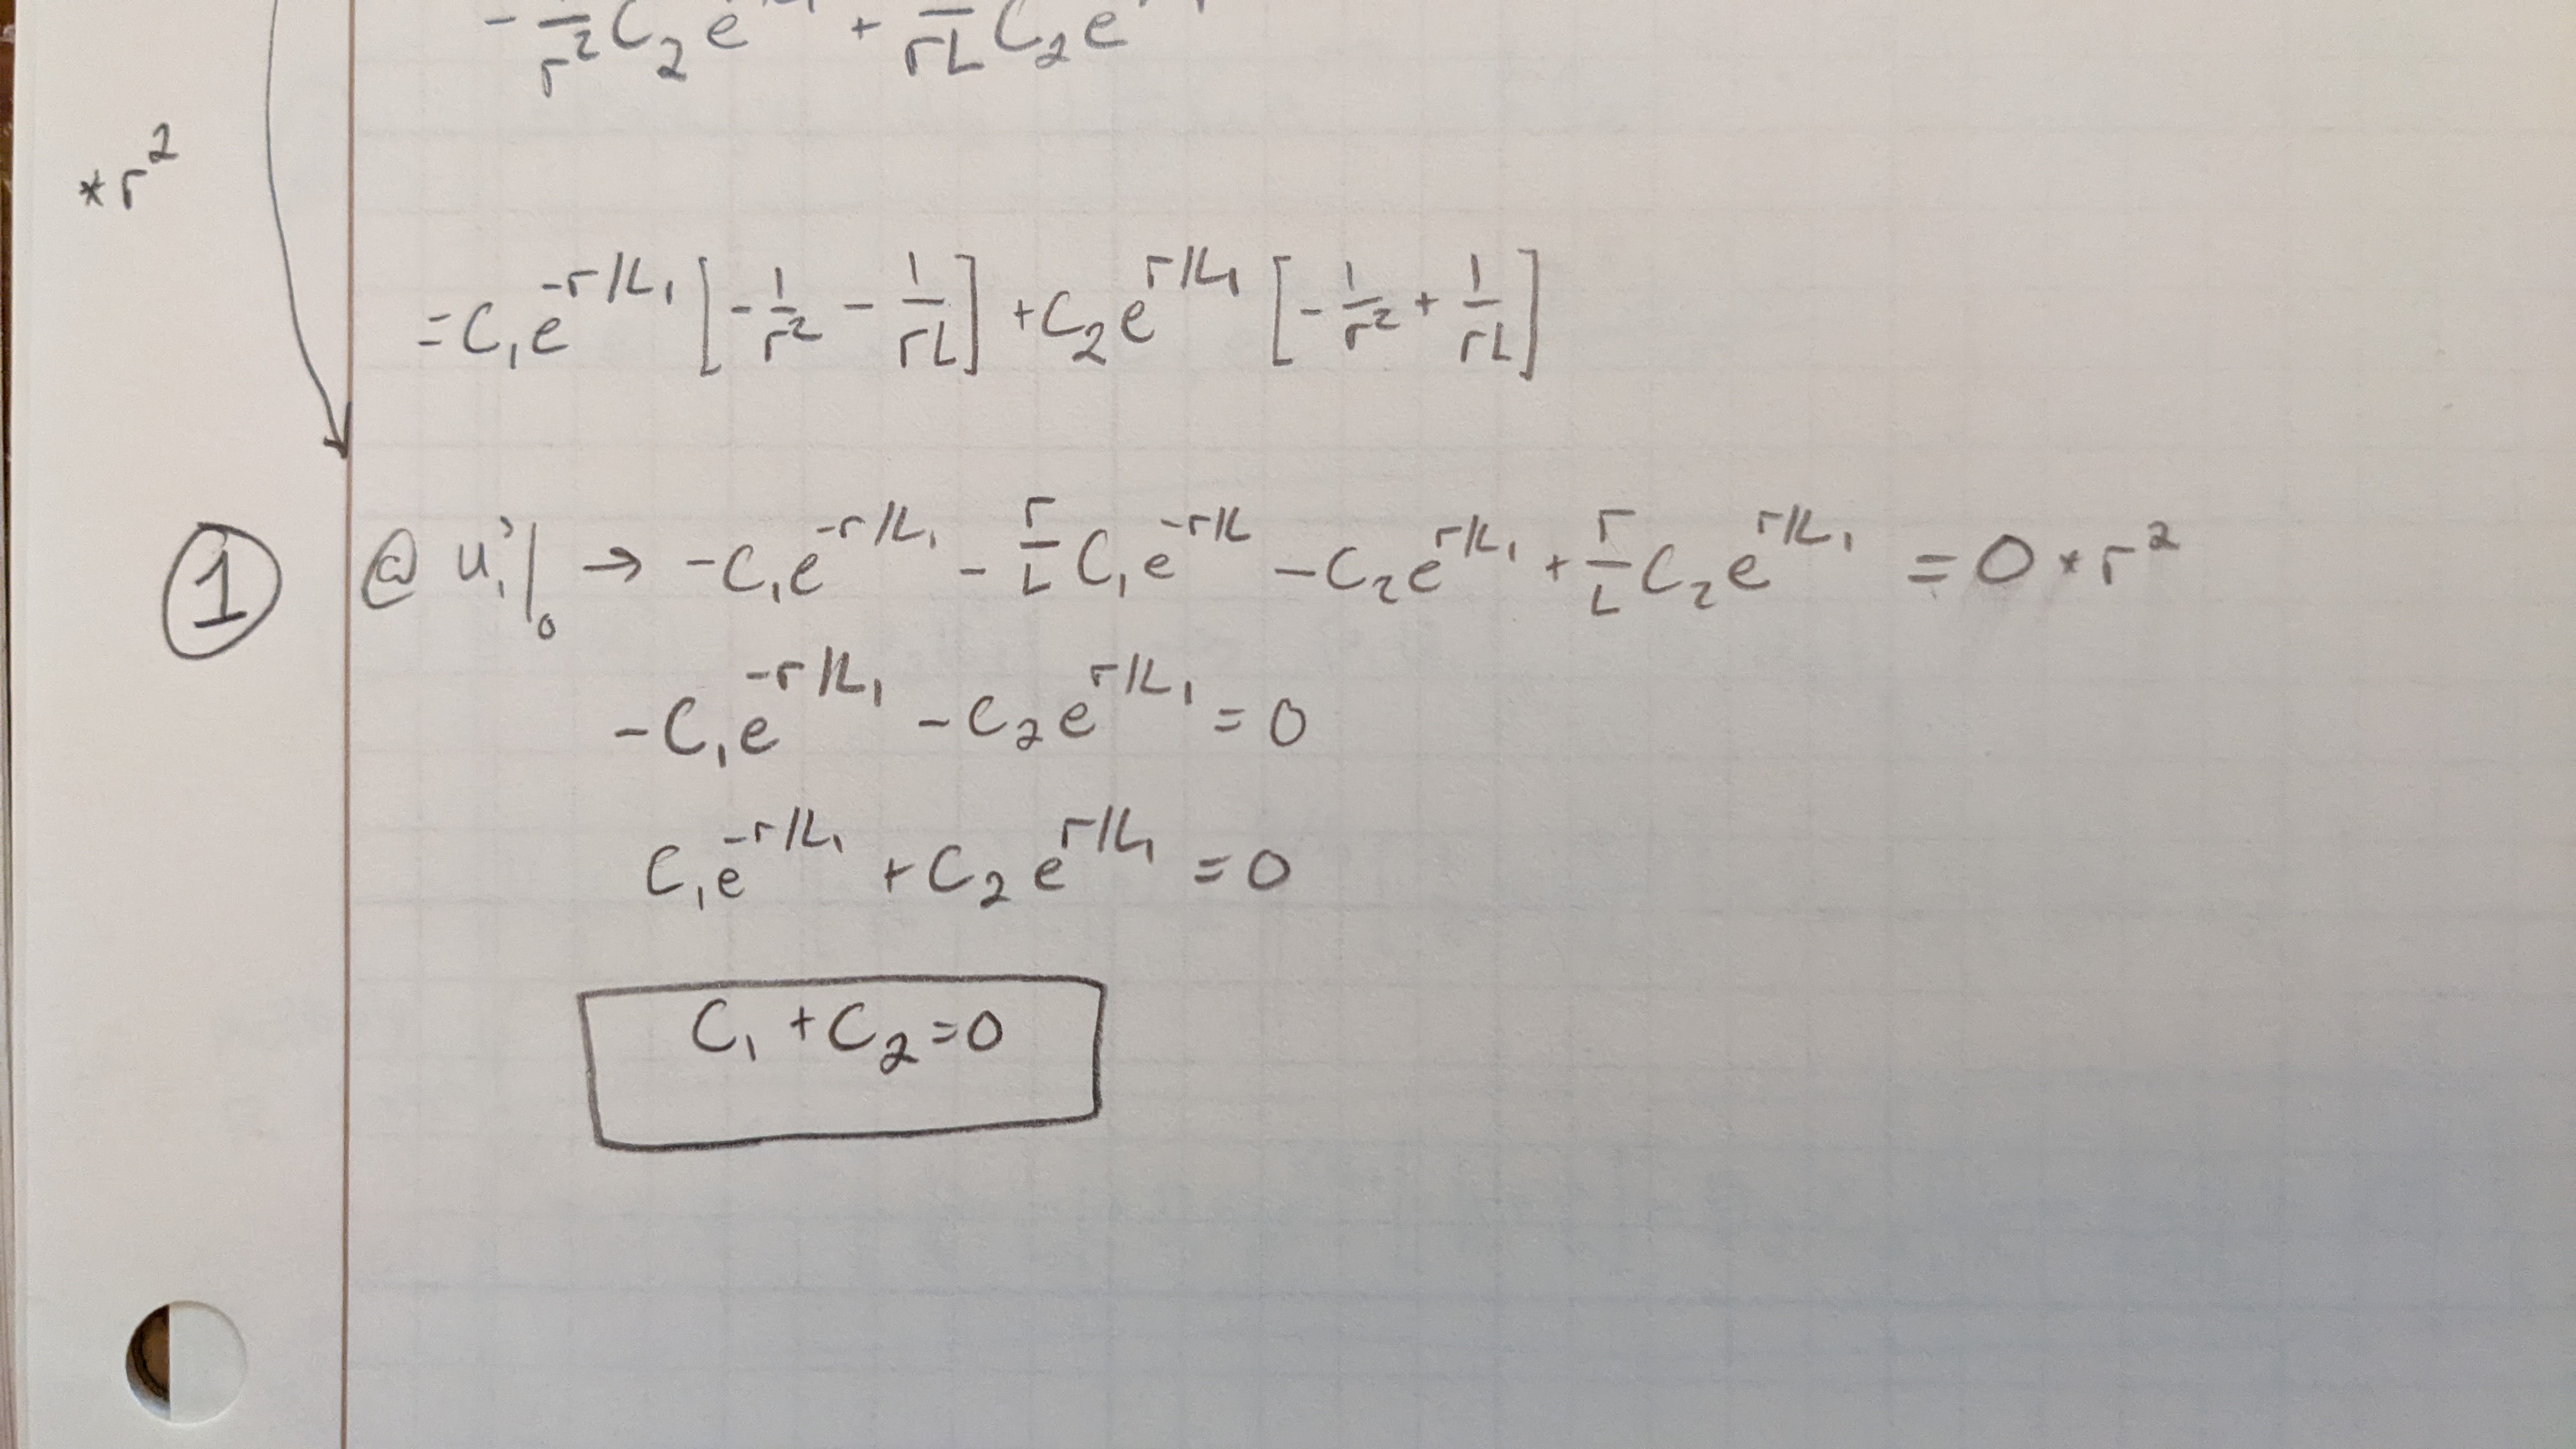 - 1/r² C₂ e + 1/rL C₂ e
*r²
= C₁e^(-r/L₁) [-1/r² - 1/rL] + C₂e^(r/L₁) [-1/r² + 1/rL]
① @ u₁'|₀ → -C₁e^(-r/L₁) - r/L C₁e^(-r/L) - C₂e^(r/L₁) + r/L C₂e^(r/L₁) = 0 * r²
-C₁e^(-r/L₁) - C₂e^(r/L₁) = 0
C₁e^(-r/L₁) + C₂e^(r/L₁) = 0
C₁ + C₂ = 0